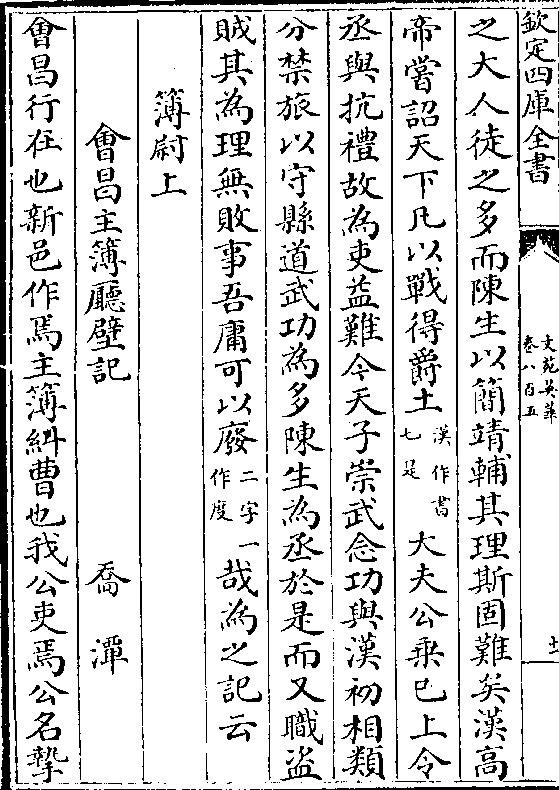 欽定四庫全書
文苑英華
卷八百五
十
之大人徒之多而陳生以簡靖輔其理斯固難矣漢高
帝嘗詔天下凡以戰得爵士漢書作七是大夫公乘已上令
丞與抗禮故為吏益難今天子崇武念功與漢初相類
分禁旅以守縣道武功為多陳生為丞於是而又職盜
賊其為理無敗事吾庸可以廢二字一作度哉為之記云
簿尉上
會昌主簿廳壁記
喬潭
會昌行在也新邑作焉主簿糾曹也我公吏焉公名摯